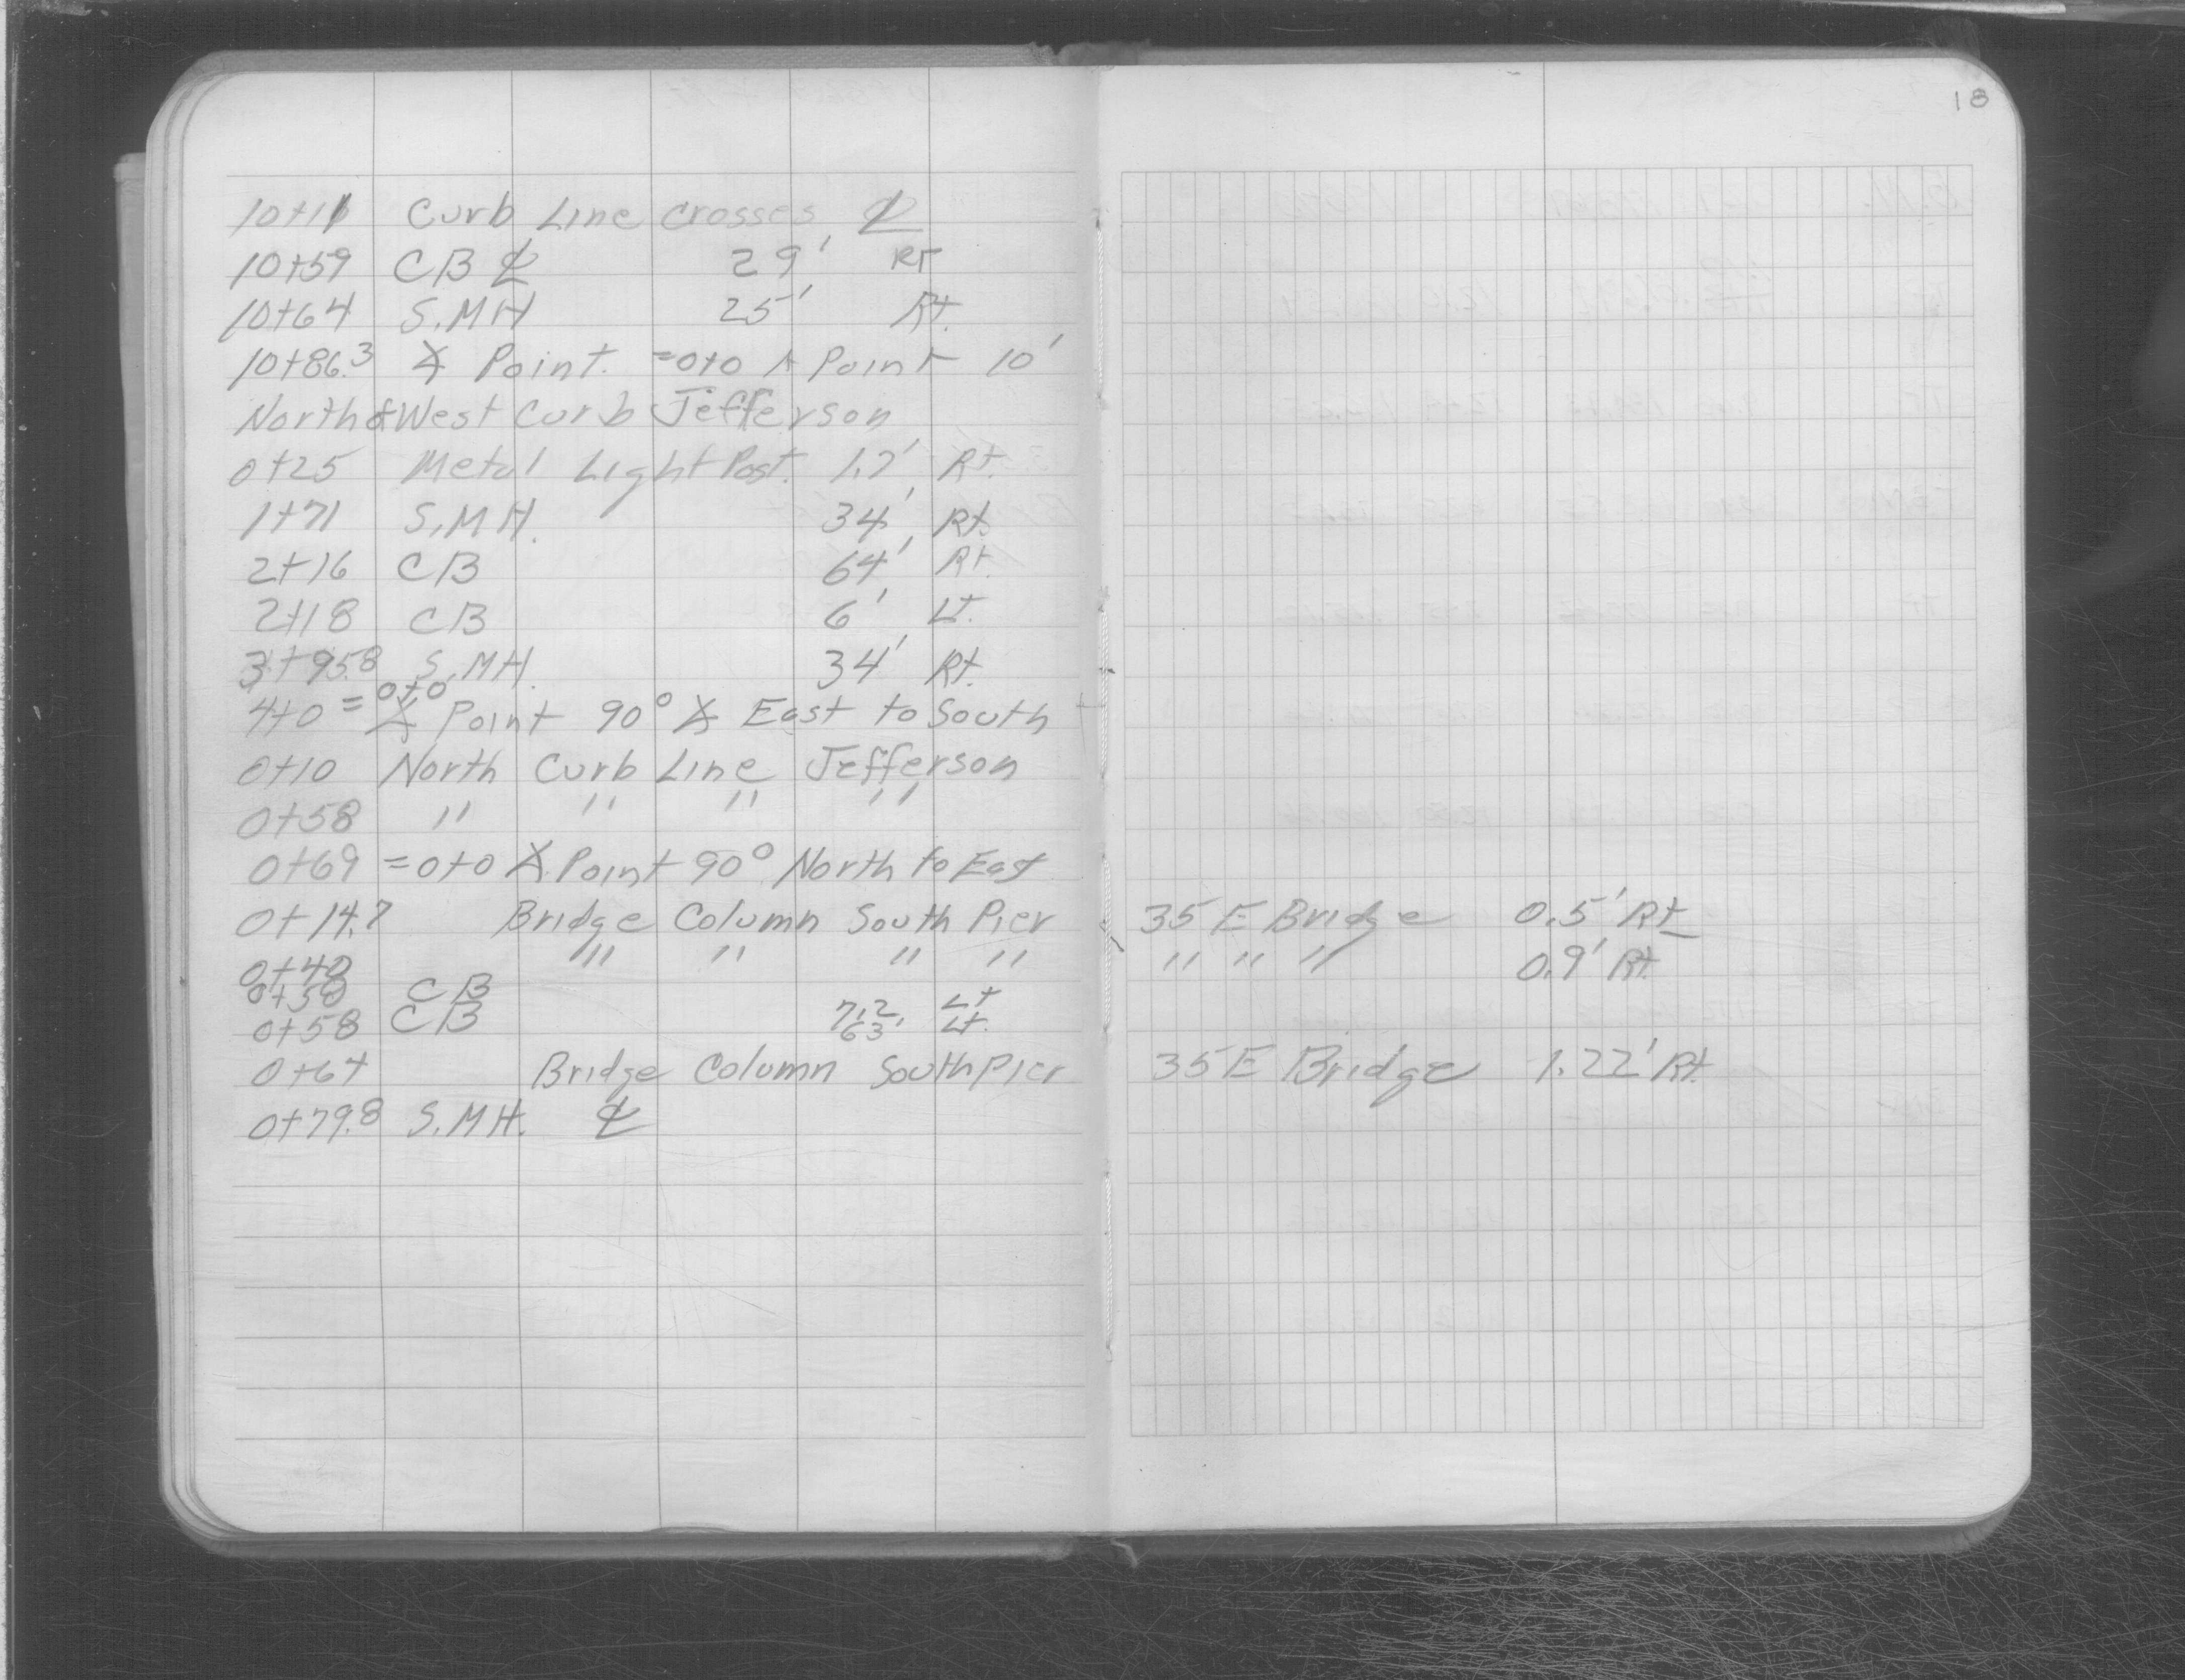 18
10+11 Curb Line Crosses ℄
10+59 CB ℄ 29' Rt
10+64 S.MH 25' Rt.
10+86.3 ∡ Point. =0+0 ∡ Point 10'
North & West Curb Jefferson
0+25 Metal Light Post. 1.7' Rt.
1+71 S.MH. 34' Rt.
2+16 CB 64' Rt.
2+18 CB 6' Lt.
3+95.8 S.MH. 34' Rt.
4+0 = 0+0 ∡ Point 90° ∡ East to South
0+10 North Curb Line Jefferson
0+58 " " " "
0+69 =0+0 ∡ Point 90° North to East
0+14.7 Bridge Column South Pier 35 E Bridge 0.5' Rt
0+40 " " " " " " " 0.9' Rt
0+50 CB 7.2' Lt
0+58 CB 63' Lt.
0+64 Bridge Column South Pier 35 E Bridge 1.22' Rt.
0+79.8 S.MH. ℄